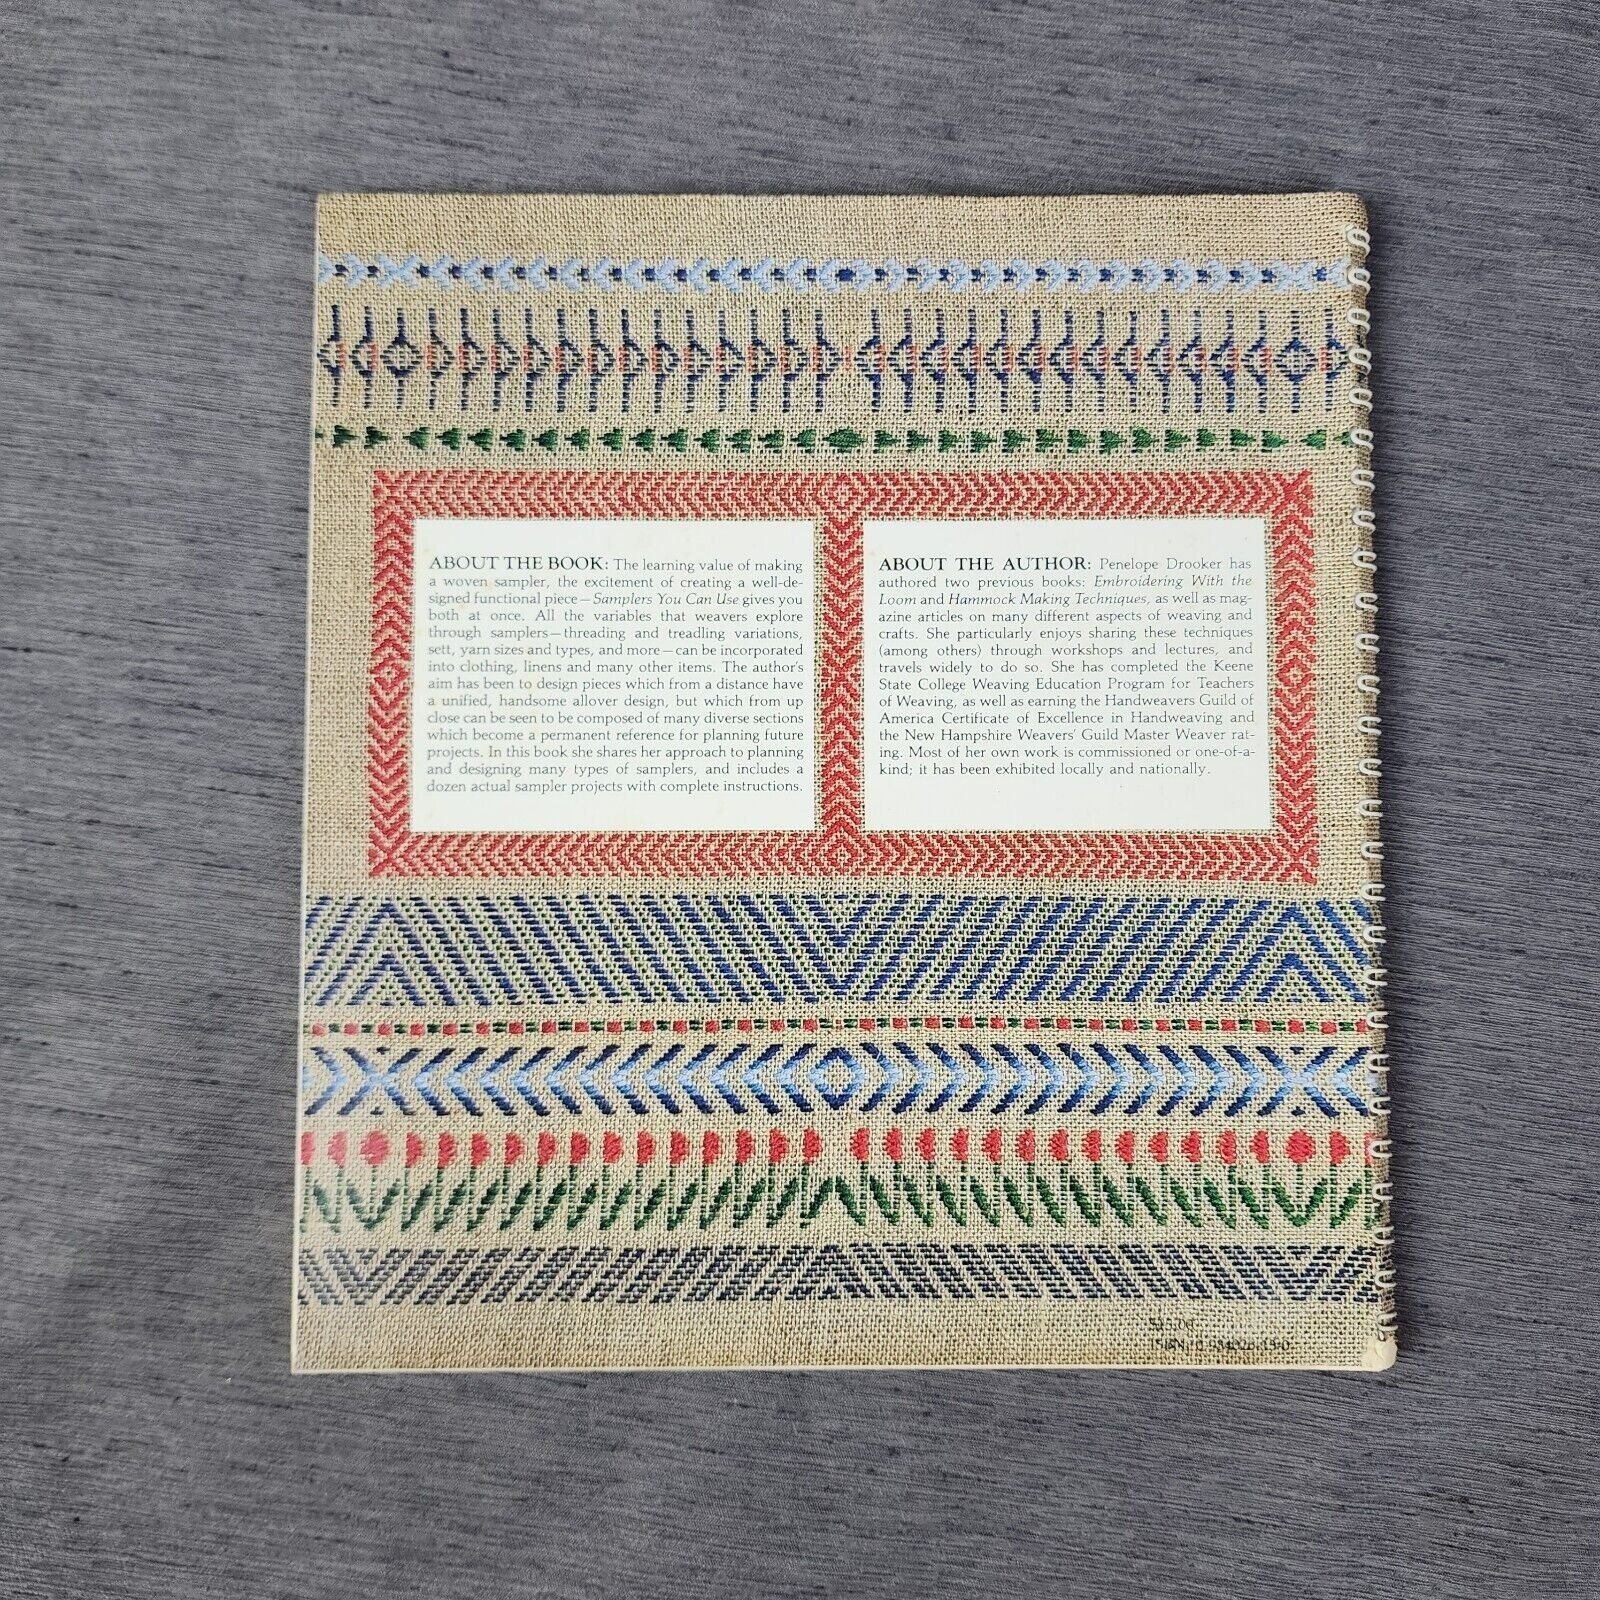 ABOUT THE BOOK: The learning value of making
a woven sampler, the excitement of creating a well-de-
signed functional piece—Samplers You Can Use gives you
both at once. All the variables that weavers explore
through samplers—threading and treadling variations,
sett, yarn sizes and types, and more—can be incorporated
into clothing, linens and many other items. The author's
aim has been to design pieces which from a distance have
a unified, handsome allover design, but which from up
close can be seen to be composed of many diverse sections
which become a permanent reference for planning future
projects. In this book she shares her approach to planning
and designing many types of samplers, and includes a
dozen actual sampler projects with complete instructions.
ABOUT THE AUTHOR: Penelope Drooker has
authored two previous books: Embroidering With the
Loom and Hammock Making Techniques, as well as mag-
azine articles on many different aspects of weaving and
crafts. She particularly enjoys sharing these techniques
(among others) through workshops and lectures, and
travels widely to do so. She has completed the Keene
State College Weaving Education Program for Teachers
of Weaving, as well as earning the Handweavers Guild of
America Certificate of Excellence in Handweaving and
the New Hampshire Weavers' Guild Master Weaver rat-
ing. Most of her own work is commissioned or one-of-a-
kind; it has been exhibited locally and nationally.
ISBN